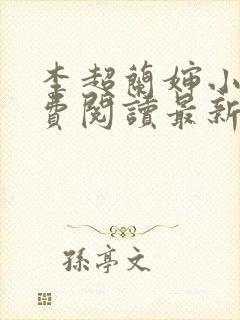 李超蘭嬸小
費閱讀最新
孫亭文